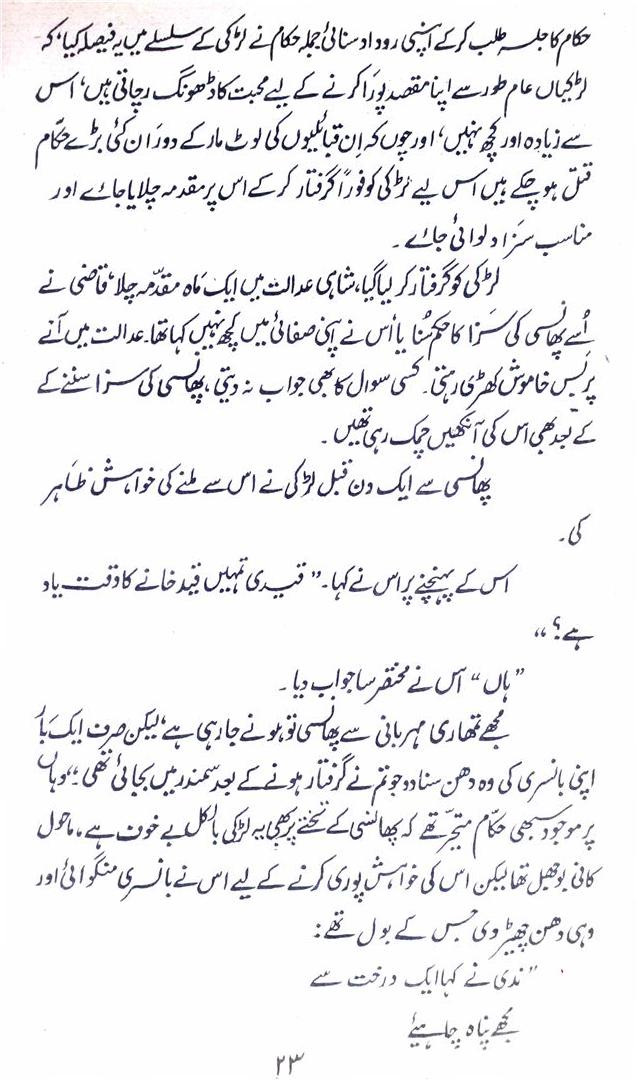 حکام کا جلسہ طلب کر کے اپنی روداد سنائی جملہ حکام نے لڑکی کے سلسلے میں یہ فیصلہ کیا، کہ
لڑکیاں عام طور سے اپنا مقصد پورَا کرنے کے لیے محبت کا ڈھونگ رچاتی ہیں، اس
سے زیادہ اور کچھ نہیں، اور چوں کہ اِن قبائلیوں کی لوٹ مار کے دورَان کئی بڑے حکّام
قتل ہو چکے ہیں اس لیے لڑکی کو فوراً گرفتار کر کے اس پر مقدمہ چلایا جائے اور
مناسب سزَا دلوائی جائے ۔
لڑکی کو گرفتار کر لیا گیا، شاہی عدالت میں ایک مَاہ مقدّمہ چلا، قاضی نے
اُسے پھانسی کی سَزا کا حکم سُنایا اُس نے اپنی صفائی میں کچھ نہیں کہا تھا۔ عدالت میں آنے
پر بَس خاموش کھڑی رہتی ۔ کسی سوال کا بھی جواب نہ دیتی، پھانسی کی سزا سننے کے
کے بعد بھی اس کی آنکھیں چمک رہی تھیں ۔
پھانسی سے ایک دن قبل لڑکی نے اس سے ملنے کی خواہش ظاہر
کی ۔
اس کے پہنچنے پر اس نے کہا ۔ ” قیدی تمہیں قید خانے کا وقت یاد
ہے؟ “
” ہاں “ اس نے مختصر سا جواب دیا ۔
مجھے تمھاری مہربانی سے پھانسی تو ہونے جا رہی ہے، لیکن صرف ایک بَار
اپنی بانسری کی وہ دھن سنا دو جو تم نے گرفتار ہونے کے بعد سمندر میں بجائی تھی ۔“ وہاں
پر موجود سبھی حکّام متحیّر تھے کہ پھانسی کے تختے پر بھی یہ لڑکی بالکل بے خوف ہے، ماحول
کافی بوجھل تھا لیکن اس کی خواہش پوری کرنے کے لیے اس نے بانسری منگوائی اور
وہی دھن چھیڑ دی جس کے بول تھے :
” ندی نے کہا ایک درخت سے
مجھے پناہ چاہیئے
۲۳